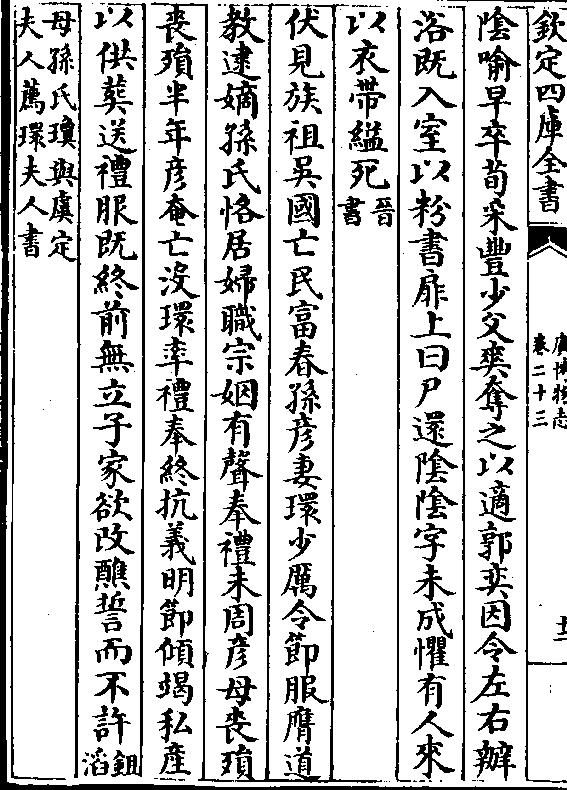 欽定四庫全書
廣博物志
卷二十三
陰喻早卒荀采豐少父爽奪之以適郭奕因令左右辦
浴既入室以粉書扉上曰尸還陰陰字未成懼有人來
以衣帶縊死晉書
伏見族祖吳國亡民富春孫彦妻環少厲令節服膺道
教逮嫡孫氏恪居婦職宗姻有聲奉禮未周彦母喪殞
喪殞半年彦奄亡没環率禮奉終抗義明節傾竭私產
以供葬送禮服既終前無立子家欲改醮誓而不許鈕滔
母孫氏瓊與虞定
夫人薦環夫人書